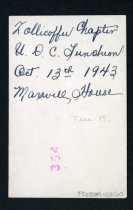 Zollicoffer Chapter
U. D. C. Luncheon
Oct. 13th 1943
Maxwell House
Teen R.
354